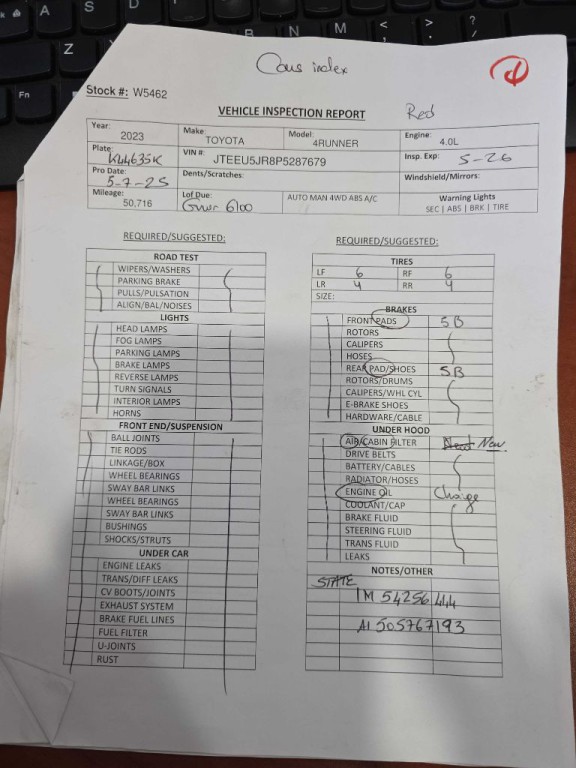 Cous index
Stock #: W5462
VEHICLE INSPECTION REPORT
Red
Year: 2023 Make: TOYOTA Model: 4RUNNER Engine: 4.0L
Plate: K44635K VIN #: JTEEU5JR8P5287679 Insp. Exp: 5-26
Pro Date: 5-7-25 Dents/Scratches: Windshield/Mirrors:
Mileage: 50,716 Lof Due: 6100 AUTO MAN 4WD ABS A/C Warning Lights
SEC | ABS | BRK | TIRE
REQUIRED/SUGGESTED:
ROAD TEST
WIPERS/WASHERS
PARKING BRAKE
PULLS/PULSATION
ALIGN/BAL/NOISES
LIGHTS
HEAD LAMPS
FOG LAMPS
PARKING LAMPS
BRAKE LAMPS
REVERSE LAMPS
TURN SIGNALS
INTERIOR LAMPS
HORNS
FRONT END/SUSPENSION
BALL JOINTS
TIE RODS
LINKAGE/BOX
WHEEL BEARINGS
SWAY BAR LINKS
WHEEL BEARINGS
SWAY BAR LINKS
BUSHINGS
SHOCKS/STRUTS
UNDER CAR
ENGINE LEAKS
TRANS/DIFF LEAKS
CV BOOTS/JOINTS
EXHAUST SYSTEM
BRAKE FUEL LINES
FUEL FILTER
U-JOINTS
RUST
REQUIRED/SUGGESTED:
TIRES
LF 6 RF 6
LR 4 RR 4
SIZE:
BRAKES
FRONT PADS 5B
ROTORS
CALIPERS
HOSES
REAR PAD/SHOES 5B
ROTORS/DRUMS
CALIPERS/WHL CYL
E-BRAKE SHOES
HARDWARE/CABLE
UNDER HOOD
AIR/CABIN FILTER New
DRIVE BELTS
BATTERY/CABLES
RADIATOR/HOSES
ENGINE OIL Change
COOLANT/CAP
BRAKE FLUID
STEERING FLUID
TRANS FLUID
LEAKS
NOTES/OTHER
STATE
IM 54256444
AI 505767193